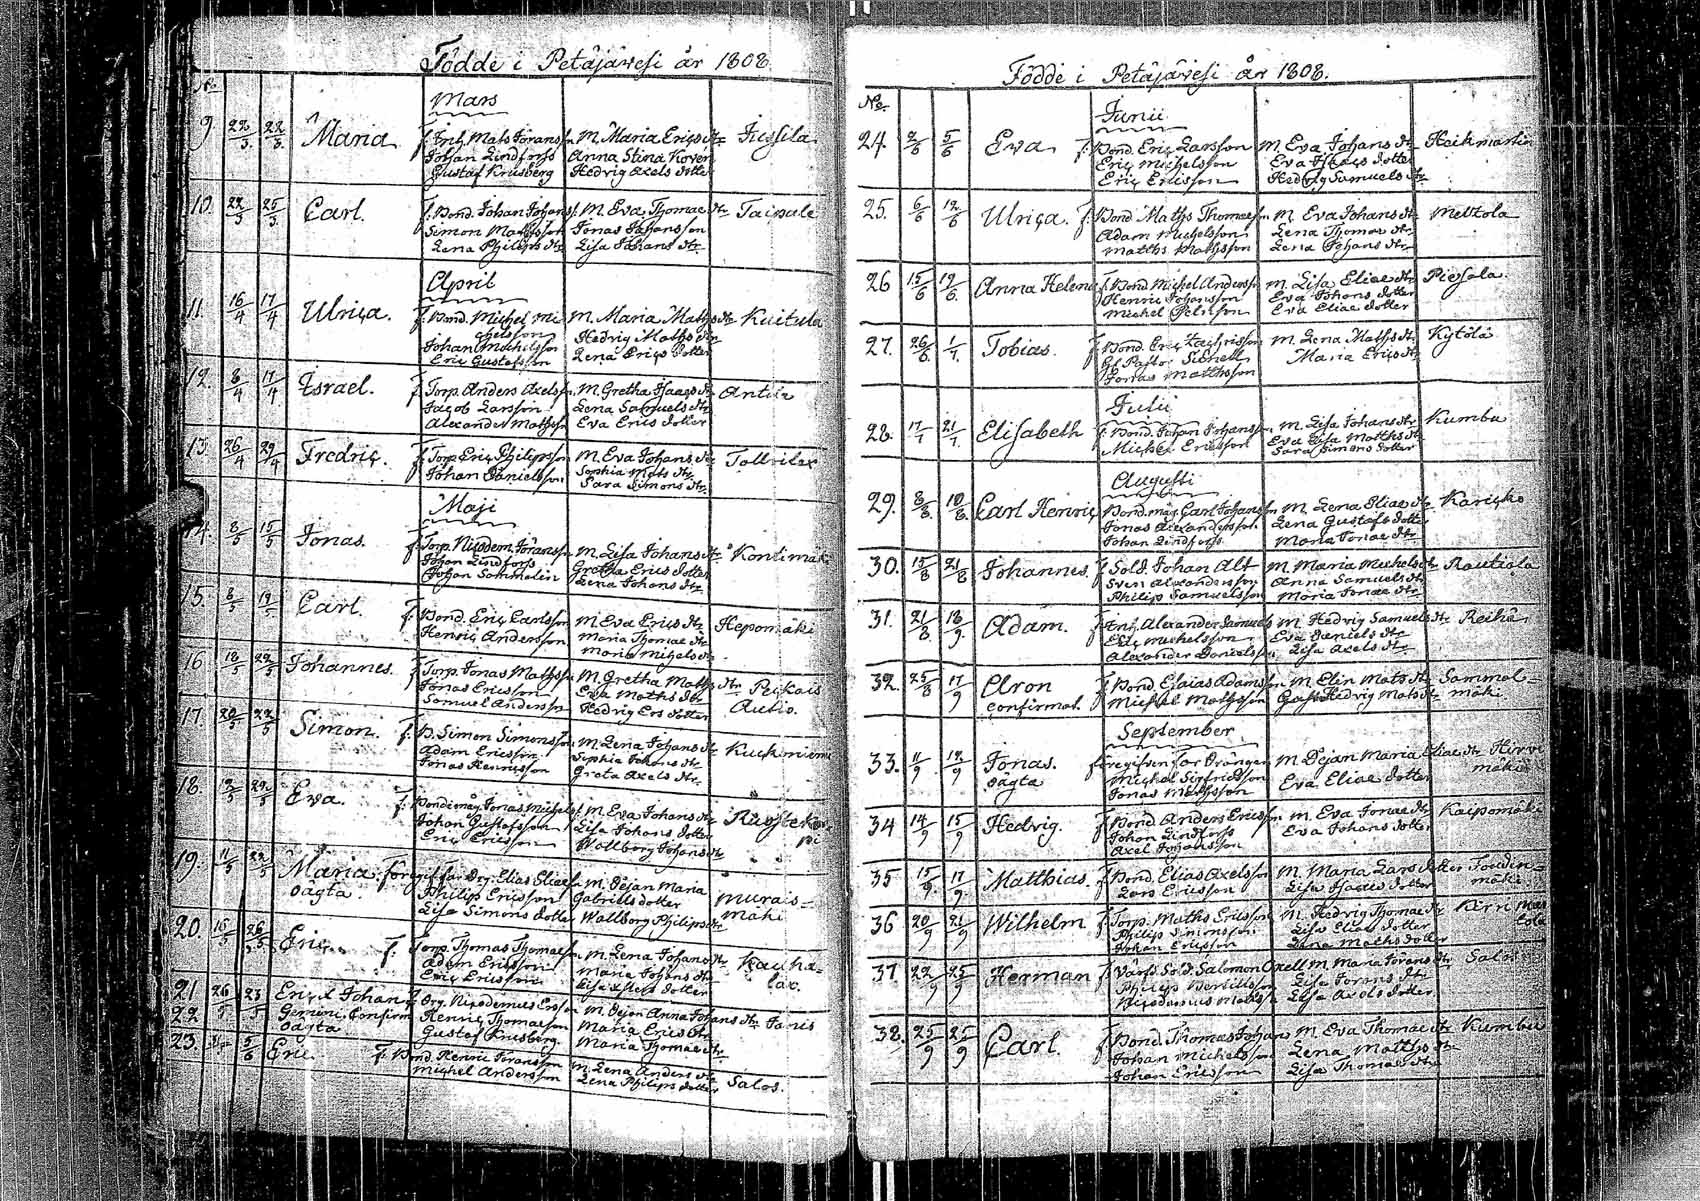 Födde i Petäjävesi år 1808.
No.
Mars
9. 22/3. 22/3. Maria f. Inh. Mats Göransson M. Maria Erics dtr Piesala
Johan Lindfors Anna Stina Koven
Gustaf Krusberg Hedvig Axels dotter
10. 22/3 25/3. Carl. f. Bond. Johan Johans M. Eva Thomae dtr Taipale
Simon Mattsson Jonas Johansson
Lena Philips dtr Lisa Johans dtr
April
11. 16/4 17/4 Ulrica. f. Bond. Michel Mi M. Maria Maths dtr Kuitula
chelsson Hedvig Maths dtr
Johan Michelsson Lena Erics dotter
Eric Gustafsson
12. 8/4 17/4 Israel. f. Torp. Anders Axelsson M. Gretha Isaacs dtr
Jacob Larsson Lena Samuels dtr
Alexander Matsson Eva Erics dotter
13. 26/4 29/4 Fredric. f. Torp. Eric Philipsson M. Eva Johans dtr
Johan Danielsson Sophia Mats dtr
Sara Simons dtr
Maji
14. 8/5 15/5 Jonas. f. Torp. Nicodem. Göransson M. Lisa Johans dtr Kontimäki
Johan Lindfors Gretha Erics dotter
Johan Sommelin Lena Johans dtr
15. 8/5 Carl. f. Bond. Eric Carlsson M. Eva Erics dtr Hepomäki
Henric Andersson Maria Thomae dtr
Maria Michels dtr
16 18/5 22/5 Johannes. f. Torp. Jonas Mathsson M. Gretha Maths dtr
Jonas Ericsson Eva Maths dtr Autio.
Samuel Andersson Hedvig Ers dotter
17. 20/5 22/5 Simon. f. B. Simon Simonsson M. Lena Johans dtr
Adam Ericsson Sophia Johans dtr
Jonas Henricsson Greta Axels dtr
18. 22/5 Eva. f. Jonas Michels M. Eva Johans dtr
Johan Gustafsson Lisa Johans dotter
Eric Ericsson Wallborg Johans dtr
19. 11/5 22/5 Maria Föregif. far Drg. Elias Eliaeson M. Pejan Maria Murais-
oägta. Philip Ericsson Gabriels dotter mäki
Lisa Simons dotter Wallborg Philips dtr
20. 16/5 26/5 Eric. f. Torp. Thomas Thomaesson M. Lena Johans dtr
Adam Ericsson Maria Johans dtr
Eric Ericsson Lisa dotter
21 26/5 Eric & Johan f. Drg. Nicodemus Ersson M. Pejan Anna Johans dtr
22 Gemini, Confirm Henric Thomaesson Maria Erics dtr
oägta Gustaf Krusberg. Maria Thomae dtr
23. 5/6 Eric f. Bond. Henric Göransson M. Lena Anders dtr Salos.
Michel Andersson Lena Philips dotter
Födde i Petäjävesi år 1808.
No.
Junii
24. 2/6 5/6 Eva f. Bond. Eric Larsson M. Eva Johans dr Heikmartin
Eric Michelsson Eva Isaacs dotter
Eric Ericsson Hedvig Samuels dtr
25. 6/6 12/6 Ulrica. f. Bond Maths Thomaesson M. Eva Johans dtr Mettola
Adam Michelsson Lena Thomae dtr
Matths Mathsson Lena Johans dtr
26 15/6 19/6. Anna Helena f. Bond Michel Andersson M. Lisa Eliae dtr Piesala
Henric Johansson Eva Johans dotter
Michel Eva Eliae dotter
27. 26/6 1/7. Tobias. f. Bond. Eric Zachrisson M. Lena Maths dtr Kytölä
Maria Erics dtr
Jonas Matthsson
Julii
28. 17/7 21/7. Elisabeth f. Bond. Johan Johansson M. Lisa Johans dtr Kumbu
Michel Ericsson Eva Lisa Matths dtr
Sara Simons dotter
Augusti
29. 8/8. 10/8. Carl Henric Bond. måg Carl Johansson M. Lena Eliae dtr Karicko
Jonas Alexandersson Lena Gustafs dotter
Johan Lindfors Maria Jonae dtr
30. 15/8 21/8 Johannes. f. Sold. Johan Alt M. Maria Michels dtr Rautiala
Sven Alexandersson Anna Samuels dtr
Philip Samuelsson Maria Jonae dtr
31. 21/8 18/9 Adam. f. Inh. Alexander Samuels M. Hedvig Samuels dtr
Eric Michelsson Eva Daniels dtr
Alexander Danielsson Lisa Axels dtr
32. 25/8 17/9 Aron f. Bond Esaias Adamsson M. Elin Mats dtr Sammal-
confirmat. Michel Mathsson Hedvig Mats dtr mäki
September
33. 11/9 12/9 Jonas. föregifven far Drängen M. Pejan Maria Eliae dtr Hirvi
oägta Michel Sigfridsson Eva Eliae dotter mäki
Jonas Mathsson
34 14/9 15/9 Hedvig. f. Bond Anders Ericsson M. Eva Jonae dtr Kaipomäki
Johan Lindfors Eva Johans dotter
Axel Johansson
35 15/9. 17/9. Matthias. f. Bond. Elias Axelsson M. Maria Lars dotter
Lars Ericsson Lisa Isaacs dotter mäki
36 20/9 21/9 Wilhelm f. Torp. Maths Ericsson M. Hedvig Thomae dtr
Philip Simonsson Lisa Eliae dotter
Johan Ericsson Lena Maths dotter
37. 22/9 25/9 Herman f. Värfd. Sold. Salomon Axell M. Maria Görans dtr
Philip Bertillsson Lisa Görans dtr
Nicodemus Mathsson Lisa Axels dotter
38. 25/9 25/9 Carl f. Bond. Thomas Johans M. Eva Thomae dtr Kumbu
Johan Michelsson Lena Matths dtr
Johan Ericsson Lisa Thomae dtr